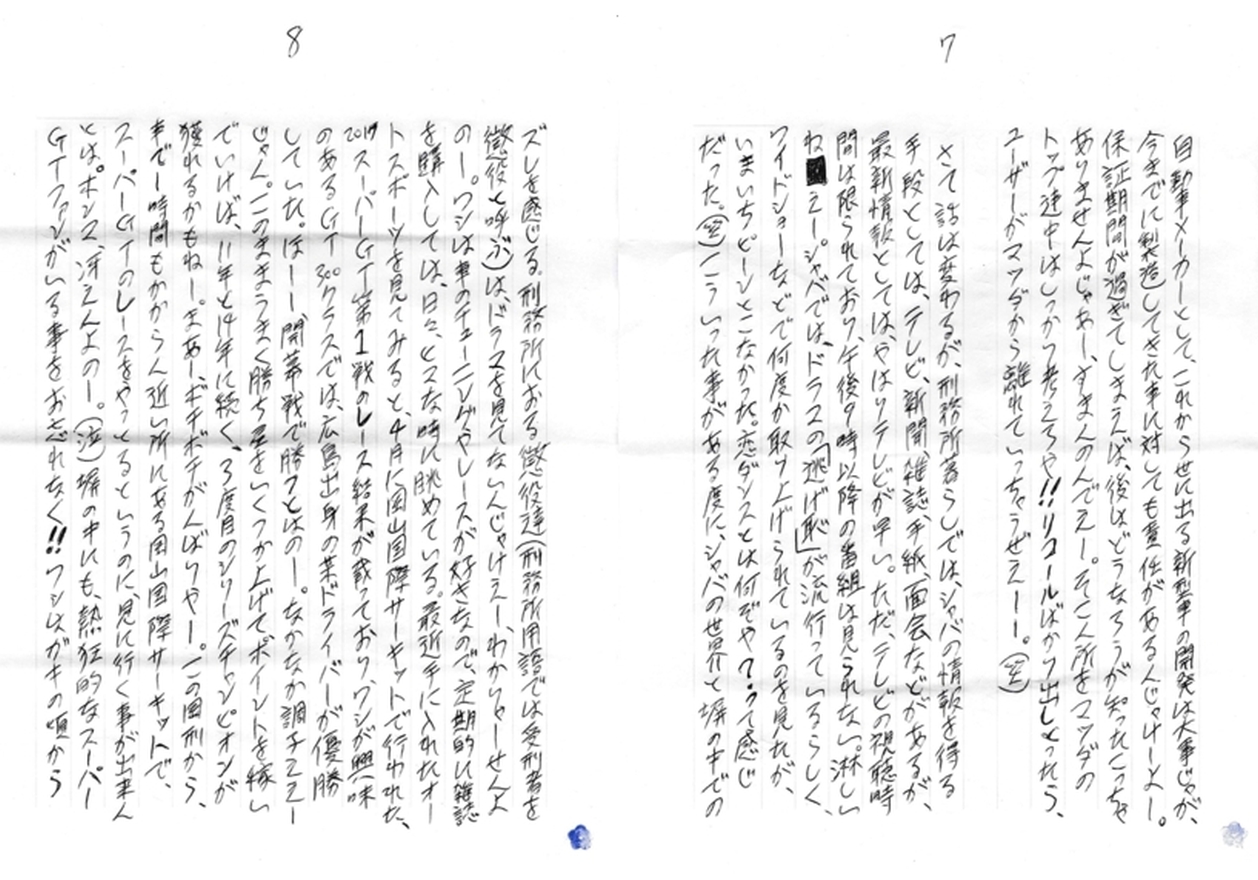 7
自動車メーカーとして、これから世に出る新型車の開発は大事じゃが、
今までに製造してきた車に対しても責任があるんじゃけーよー。
保証期間が過ぎてしまえば、後はどうなろうが知ったこっちゃ
ありませんよじゃあー、すまんのんでえー。そこん所をマツダの
トップ連中はしっかり考ええや!!リコールばかり出しとったら、
ユーザーがマツダから離れていっちゃうぜえーー。(笑)
さて話は変わるが、刑務所暮らしでは、シャバの情報を得る
手段としては、テレビ、新聞、雑誌、手紙、面会などがあるが、
最新情報としてはやはりテレビが早い。ただ、テレビの視聴時
間は限られており、午後9時以降の番組は見られない。淋しい
ねえー。シャバでは、ドラスの「逃げ恥」が流行っているらしく、
ワイドショーなどで何度か取り上げられているのを見れたが、
いまいちピーンとこなかった。恋ダンスとは何ぞや?って感じ
だった。(笑)こういった事がある度に、シャバの世界と塀の中での
8
ズレを感じる。刑務所におる懲役達(刑務所用語では受刑者を
懲役と呼ぶ)は、ドラスを見てないんじゃけえー、わかりゃーせんよ
のー。ワシは車のチューニングやレースが好きなので、定期的に雑誌
を購入しては、日々、ヒマな時に眺めている。最近手に入れたオー
トスポーツを見てみると、4月に岡山国際サーキットで行われた、
2017スーパーGT第1戦のレース結果が載っており、ワシが興味
のあるGT300クラスでは、広島出身の某ドライバーが優勝
していた。ほーー、開幕戦で勝つとはのー。なかなか調子ええー
じゃん。このままうまく勝ち星をいくつか上げてポイントを稼い
でいけば、11年と14年に続く、3度目のシリーズチャンピオンが
獲れるかもねー。まあー、ボチボチがんばりやー。この岡刑から、
車で1時間もかからん近い所にある岡山国際サーキットで、
スーパーGTのレースをやっとるというのに、見に行く事が出来ん
とは。ホンマ、冴えんよのー。(泣)塀の中にも、熱狂的なスーパー
GTファンがいる事をお忘れなく!!ワシはガキの頃から